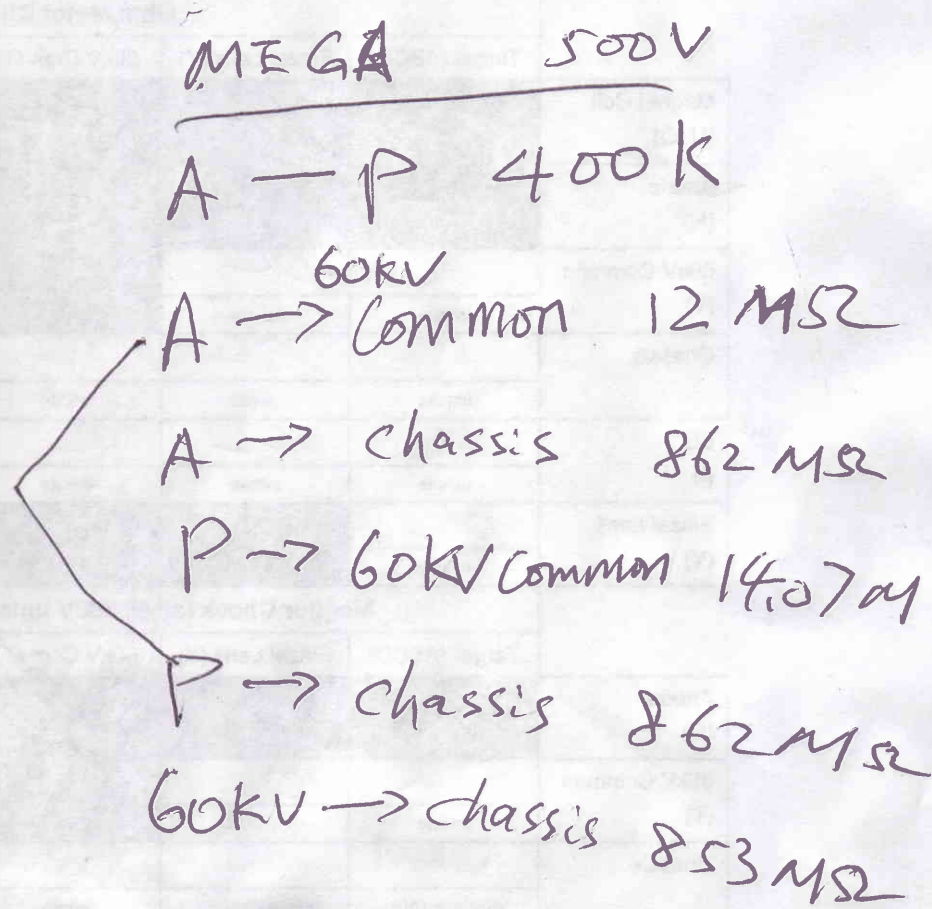 MEGA 500V
A — P 400K
A → 60KV Common 12 MΩ
A → chassis 862 MΩ
P → 60KV Common 14.07 M
P → chassis 862 MΩ
60KV → chassis 853 MΩ